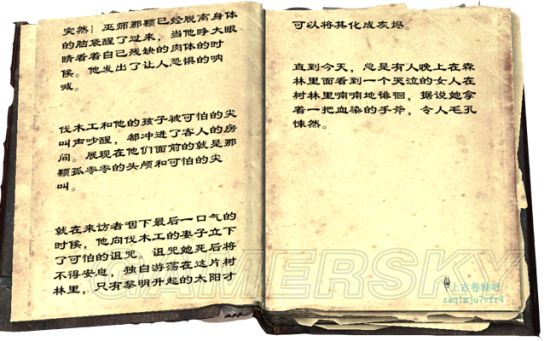 突然！巫师那颗已经脱离身体
的脑袋醒了过来，当他睁大眼
睛看着自己残缺的肉体的时
候。他发出了让人恐惧的呐
喊。
伐木工和他的孩子被可怕的尖
叫声吵醒，都冲进了客人的房
间。展现在他们面前的就是那
颗孤零零的头颅和可怕的尖
叫。
就在来访者咽下最后一口气的
时候，他向伐木工的妻子立下
了可怕的诅咒。诅咒她死后将
不得安息，独自游荡在这片树
林里，只有黎明升起的太阳才
可以将其化成灰烬。
直到今天，总是有人晚上在森
林里面看到一个哭泣的女人在
树林里喃喃地徘徊，据说她拿
着一把血染的手斧，令人毛孔
悚然。
GAMERSKY
上古卷轴吧
zaqxmju7vfr4